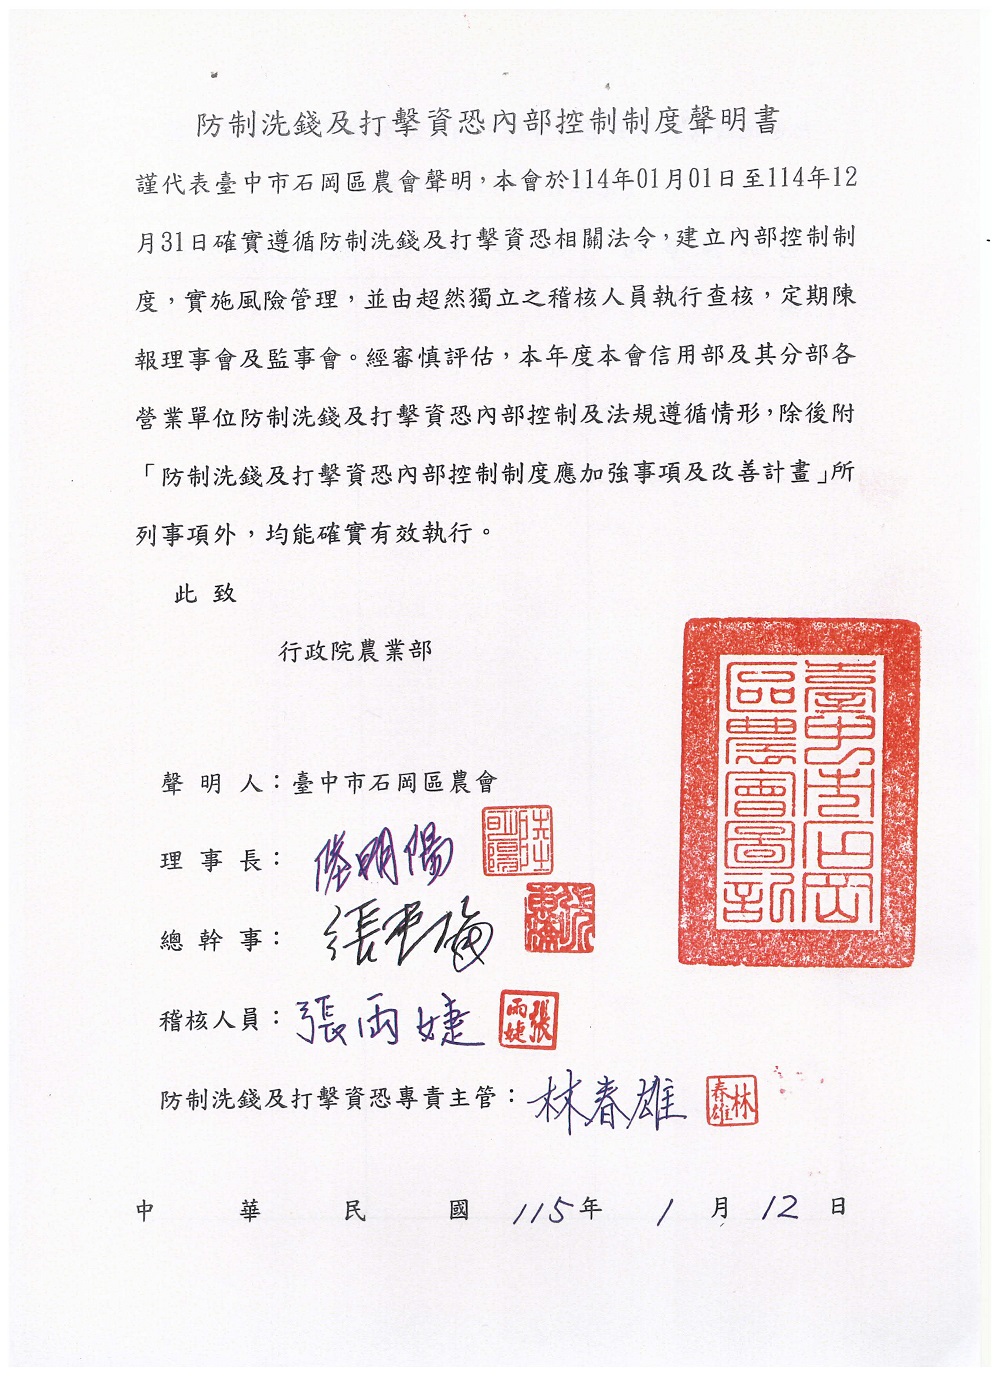 防制洗錢及打擊資恐內部控制制度聲明書
謹代表臺中市石岡區農會聲明，本會於114年01月01日至114年12
月31日確實遵循防制洗錢及打擊資恐相關法令，建立內部控制制
度，實施風險管理，並由超然獨立之稽核人員執行查核，定期陳
報理事會及監事會。經審慎評估，本年度本會信用部及其分部各
營業單位防制洗錢及打擊資恐內部控制及法規遵循情形，除後附
「防制洗錢及打擊資恐內部控制制度應加強事項及改善計畫」所
列事項外，均能確實有效執行。
此 致
行政院農業部
臺中市石岡區農會圖記
聲 明 人：臺中市石岡區農會
理 事 長：明陽
總 幹 事：張
稽核人員：張雨婕 張雨婕
防制洗錢及打擊資恐專責主管：林春雄 林春雄
中 華 民 國 115 年 1 月 12 日